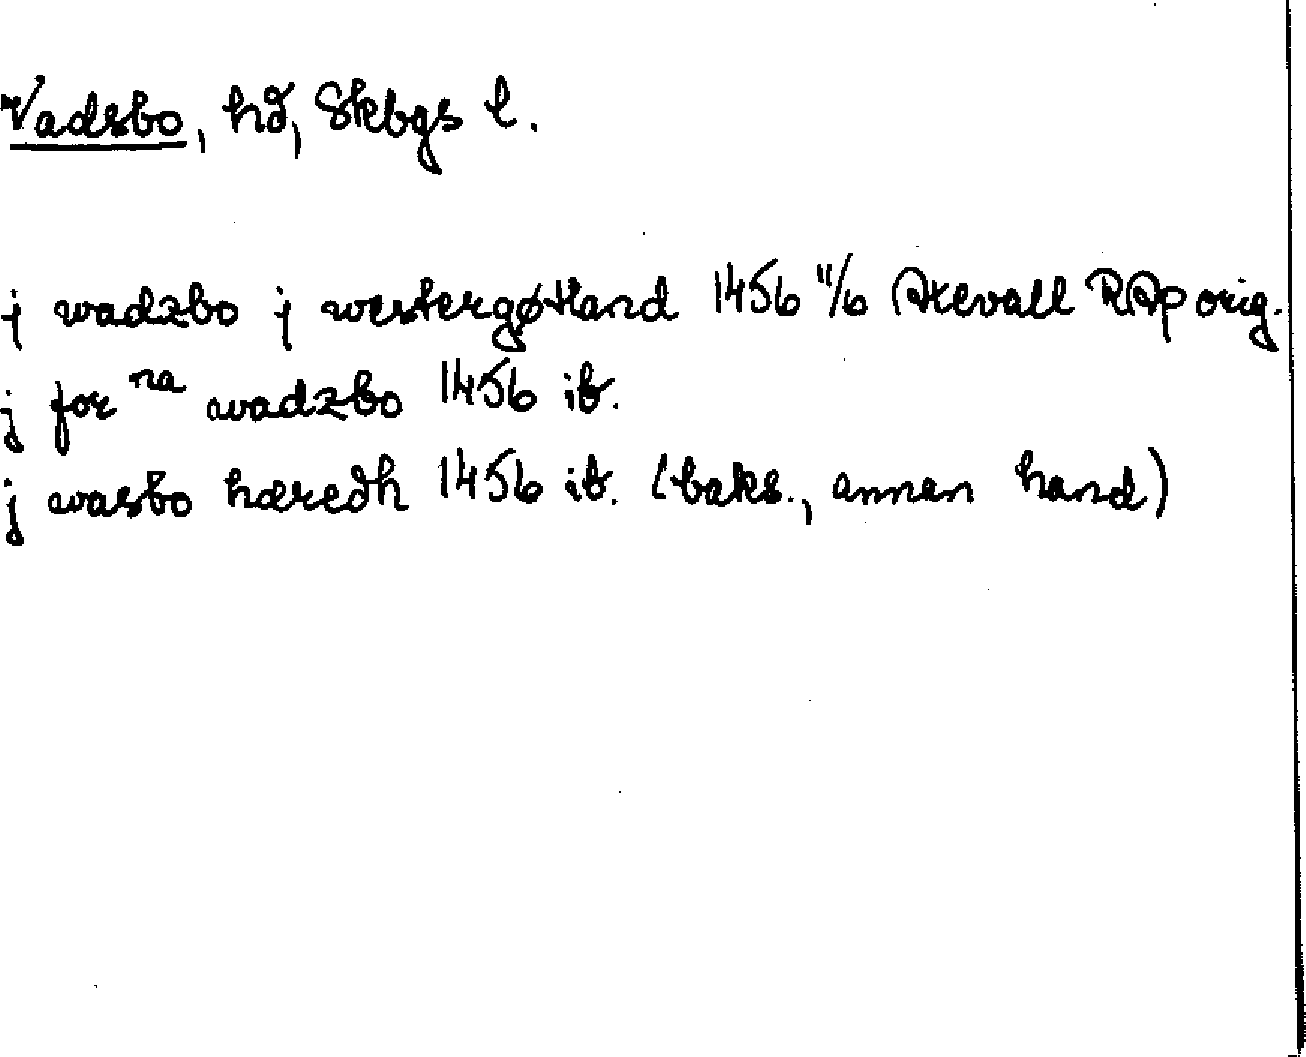 Vadsbo, hd, Skbgs l.
j wadzbo j westergøtland 1456 11/6 Axevall RAp orig.
j for na wadzbo 1456 ib.
j wasbo hæredh 1456 ib. (baks., annan hand)